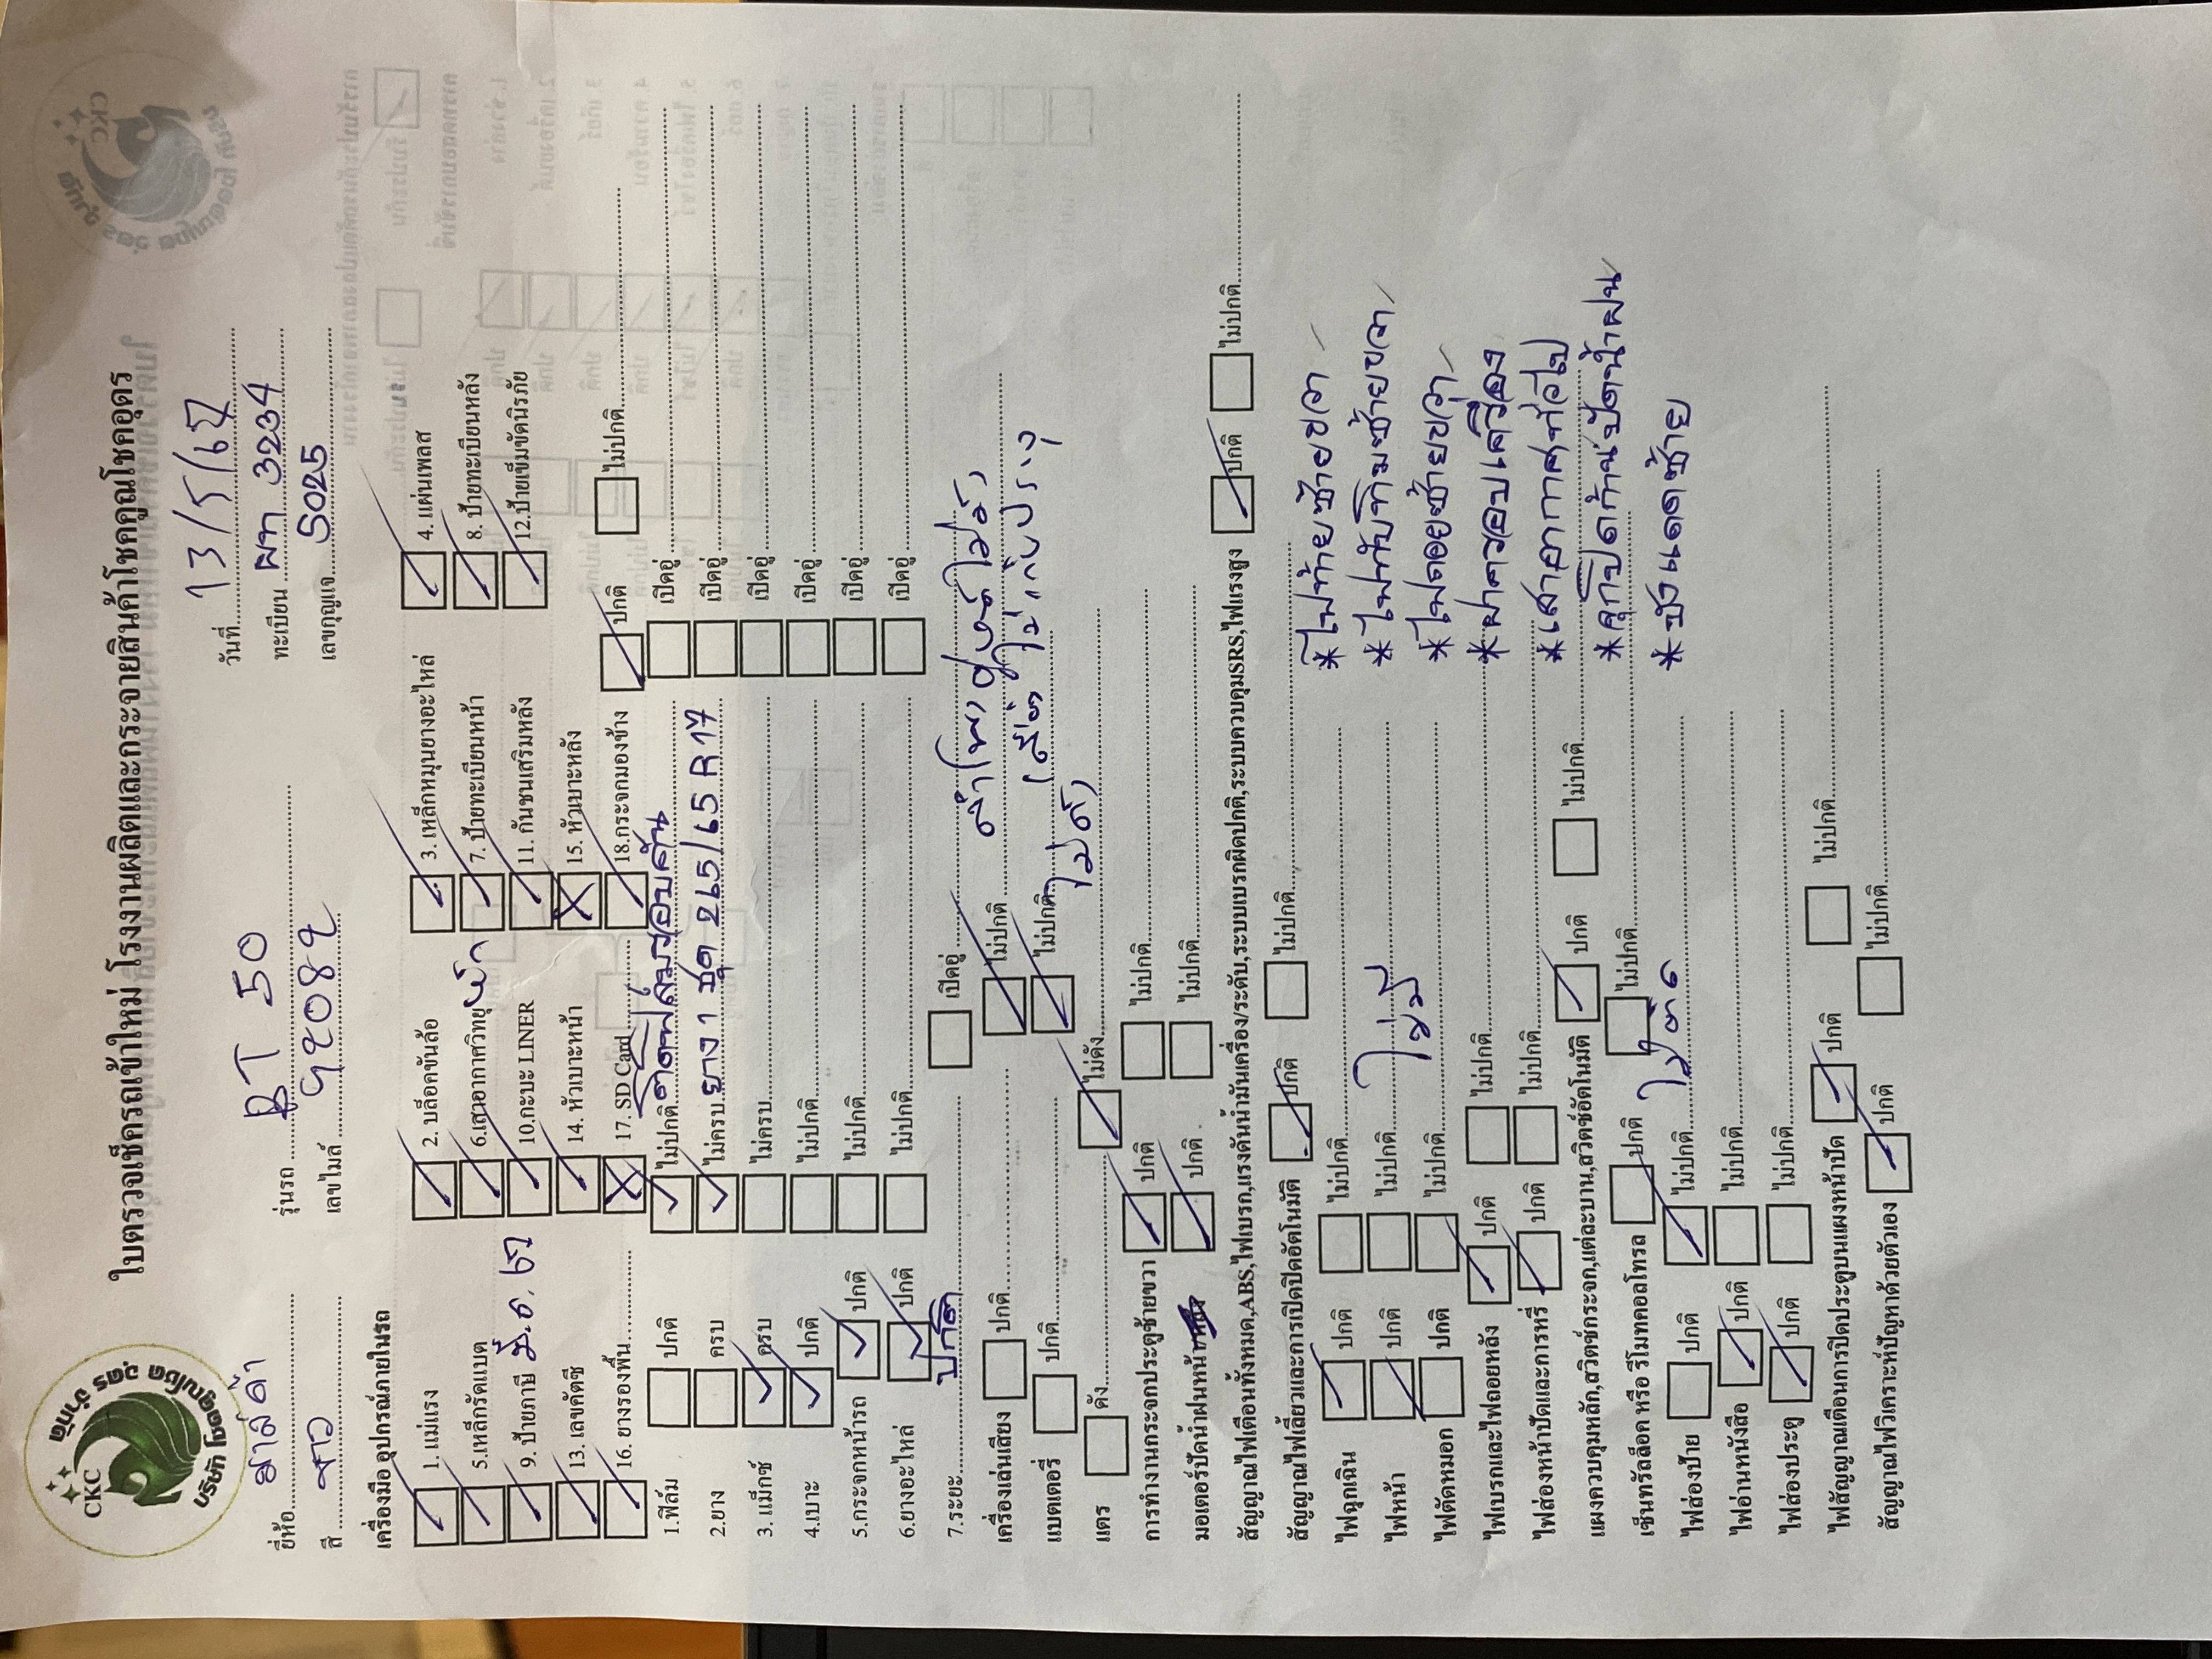 ใบตรวจเช็ครถเข้าใหม่ โรงงานผลิตและกระจายสินค้าโชคคูณโชคอุดร
CKC
บริษัท โชคคูณโชค อุดร จำกัด
วันที่ 13/5/67
ยี่ห้อ มาสด้า รุ่นรถ BT 50 ทะเบียน ผท 3234
สี ขาว เลขไมล์ 92089 เลขกุญแจ 5025
เครื่องมือ อุปกรณ์ภายในรถ
1. แม่แรง 2. บล็อคขันล้อ 3.เหล็กหมุนยางอะไหล่ 4. แผ่นเพลส
5.เหล็กรัคแบต 6.เสาอากาศวิทยุ หน้า 7.ป้ายทะเบียนหน้า 8. ป้ายทะเบียนหลัง
9. ป้ายภาษี มี.ค. 67 10.กะบะ LINER 11. กันชนเสริมหลัง 12.ป้ายเข็มขัดนิรภัย
13. เลขคัตซี 14. หัวเบาะหน้า 15. หัวเบาะหลัง
16. ยางรองพื้น 17. SD Card 18.กระจกมองข้าง ปกติ ไม่ปกติ
1.ฟิล์ม ปกติ ไม่ปกติ ติดฟิล์มรอบคัน เปิดอู่
2.ยาง ครบ ไม่ครบ ยาง 1 ชุด 265/65 R 17 เปิดอู่
3. แม็กซ์ ครบ ไม่ครบ เปิดอู่
4.เบาะ ปกติ ไม่ปกติ เปิดอู่
5.กระจกหน้ารถ ปกติ ไม่ปกติ เปิดอู่
6.ยางอะไหล่ ปกติ ไม่ปกติ เปิดอู่
7.ระยะ ปกติ เปิดอู่
เครื่องเล่นเสียง ปกติ ไม่ปกติ
แบตเตอรี่ ปกติ ไม่ปกติ
แตร ดัง ไม่ดัง
การทำงานกระจกประตูซ้ายขวา ปกติ ไม่ปกติ
มอเตอร์ปัดน้ำฝนหน้า ปกติ ไม่ปกติ
สัญญาณไฟเตือนทั้งหมด,ABS,ไฟเบรก,แรงดันน้ำมันเครื่อง/ระดับ,ระบบเบรกผิดปกติ,ระบบควบคุมSRS,ไฟแรงสูง ปกติ ไม่ปกติ
สัญญาณไฟเลี้ยวและการเปิดปิดอัตโนมัติ ปกติ ไม่ปกติ
ไฟฉุกเฉิน ปกติ ไม่ปกติ *ไฟท้ายซ้ายขวา
ไฟหน้า ปกติ ไม่ปกติ *ไฟทับทิมซ้ายขวา
ไฟตัดหมอก ปกติ ไม่ปกติ ไม่มี *ไฟถอยซ้ายขวา
ไฟเบรกและไฟถอยหลัง ปกติ ไม่ปกติ *ฝาครอบเครื่อง
ไฟส่องหน้าปัดและการหรี่ ปกติ ไม่ปกติ *เสาอากาศทั่วไป
แผงควบคุมหลัก,สวิตช์กระจก,แต่ละบาน,สวิตช์อัตโนมัติ ปกติ ไม่ปกติ
เซ็นทรัลล็อค หรือ รีโมทคอลโทรล ปกติ ไม่ปกติ *จุกปิดก้านปัดน้ำฝน
ไฟส่องป้าย ปกติ ไม่ปกติ ไม่ติด *บังแดดซ้าย
ไฟอ่านหนังสือ ปกติ ไม่ปกติ
ไฟส่องประตู ปกติ ไม่ปกติ
ไฟสัญญาณเตือนการปิดประตูบนแผงหน้าปัด ปกติ ไม่ปกติ
สัญญาณไฟวิเคราะห์ปัญหาด้วยตัวเอง ปกติ ไม่ปกติ